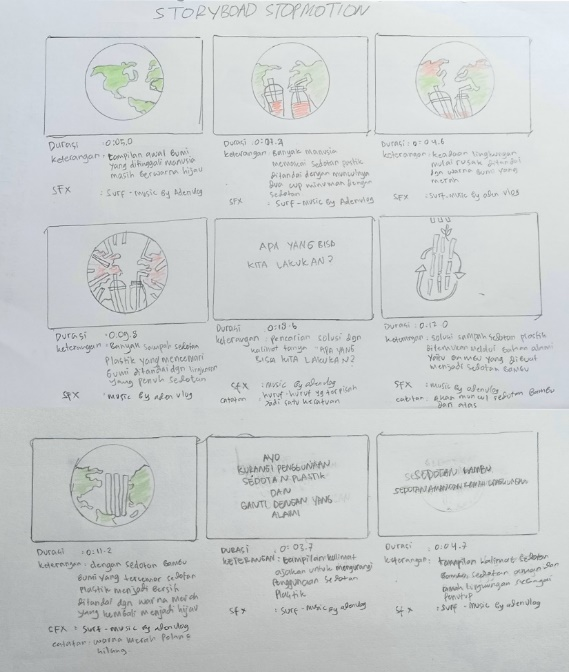 STORYBOAD STOPMOTION
Durasi : 0:05,0
keterangan : tampilan awal Bumi
yang ditinggali manusia
masih berwarna hijau
SFX : Surf - music By Adenvlog
Durasi : 0:07.2
keterangan : Banyak manusia
memakai sedotan plastik
ditandai dengan munculnya
dua cup minuman dengan
sedotan.
SFX : Surf - Music By Adenvlog
Durasi : 0:04.6
keterangan : keadaan lingkungan
mulai rusak ditandai
dgn warna Bumi yang
merah
SFX : Surf-music By aden vlog
Durasi : 0:09.8
keterangan : Banyak sampah sedotan
Plastik yang mencemari
Bumi ditandai dgn
yang penuh sedotan
SFX : music By adenvlog
APA YANG BISA
KITA LAKUKAN?
Durasi : 0:18.6
keterangan : Pencarian solusi dgn
kalimat tanya APA YANG
BISA KITA LAKUKAN?
SFX : Music By adenvlog
catatan : huruf-huruf yg terpisah
Jadi satu kesatuan
Durasi : 0:17.0
keterangan : solusi sampah sedotan plastik
ditemukan melalui bahan alami
yang dibuat
menjadi sedotan Bambu
SFX : music By adenvlog
catatan : Akan muncul Bambu
dari atas
Durasi : 0:11.2
keterangan : dengan sedotan Bambu
Bumi yang tercemar sedotan
Plastik menjadi Bersih
Ditandai dgn warna Merah
yang kembali menjadi hijau
SFX : Surf - music By adenvlog
catatan : warna merah Pelan
hilang.
AYO
KURANGI PENGGUNAAN
SEDOTAN PLASTIK
DAN
GANTI DENGAN YANG
ALAMI
Durasi : 0:03.7
KETERANGAN : tampilan kalimat
ajakan untuk mengurangi
Penggunaan sedotan
Plastik
SFX : Surf - Music By adenvlog
SEDOTAN BAMBU
SEDOTAN AMAN DAN RAMAH LINGKUNGAN
Durasi : 0:04.7
keterangan : tampilan kalimat sedotan
Bambu sedotan aman dan
ramah lingkungan sebagai
Penutup
SFX : Surf - Music By Adenvlog